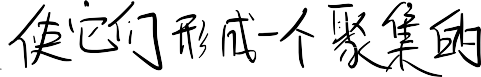 使它们形成一个聚集的